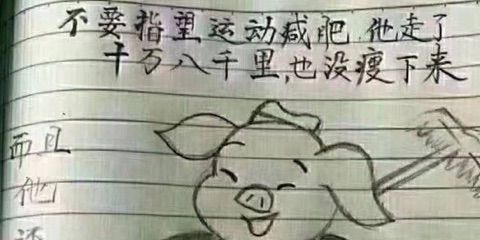 不要指望运动减肥,他走了
十万八千里,也没瘦下来
而且
他
还